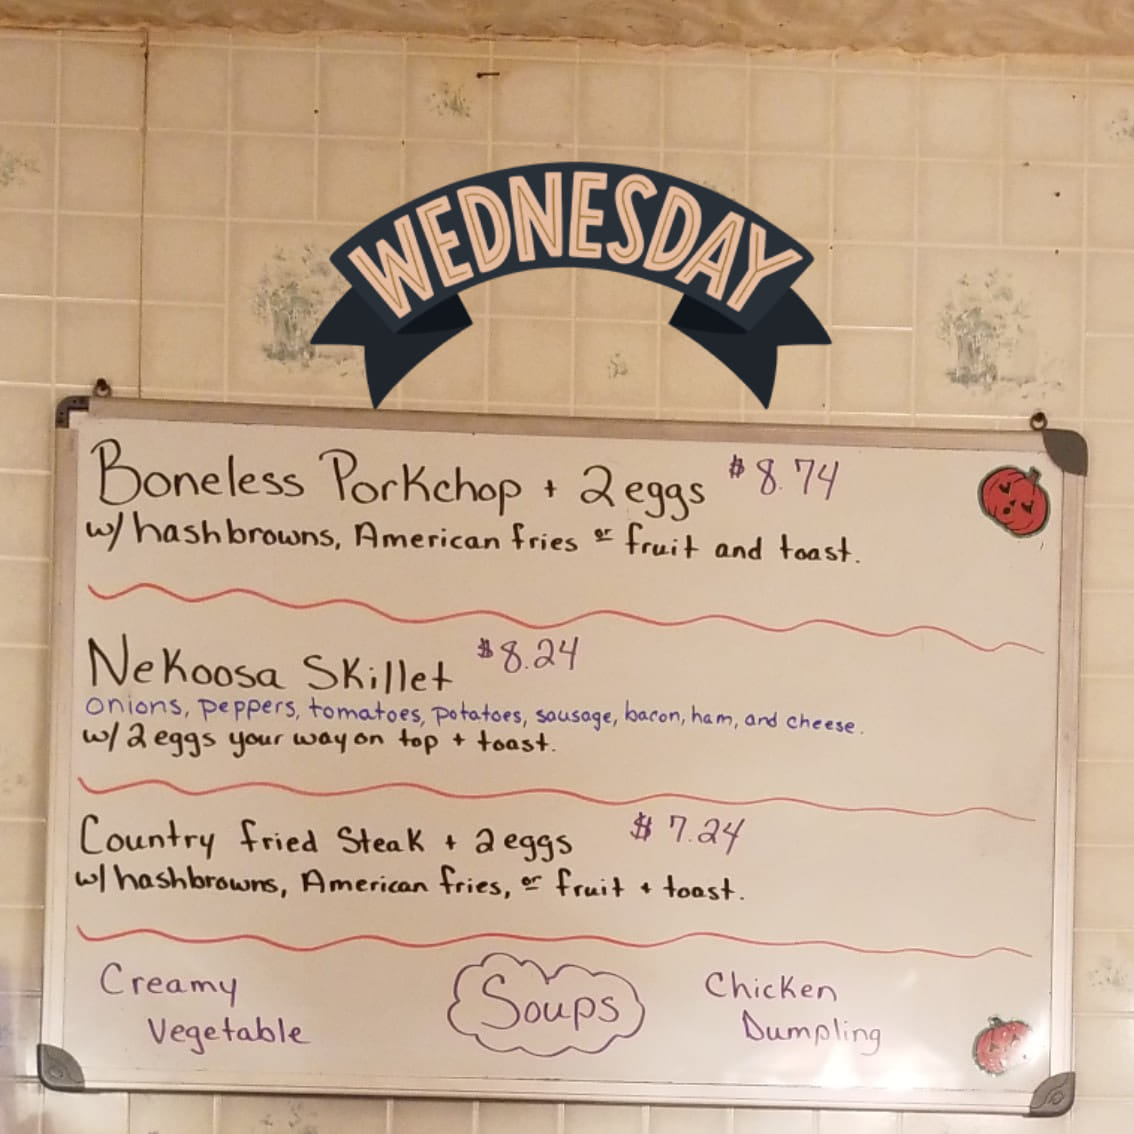 WEDNESDAY
Boneless Porkchop + 2 eggs $8.74
w/ hashbrowns, American fries or fruit and toast.
Nekoosa Skillet $8.24
onions, peppers, tomatoes, potatoes, sausage, bacon, ham, and cheese.
w/ 2 eggs your way on top + toast.
Country fried Steak + 2 eggs $7.24
w/ hashbrowns, American fries, or fruit + toast.
Soups
Creamy
Vegetable
Chicken
Dumpling